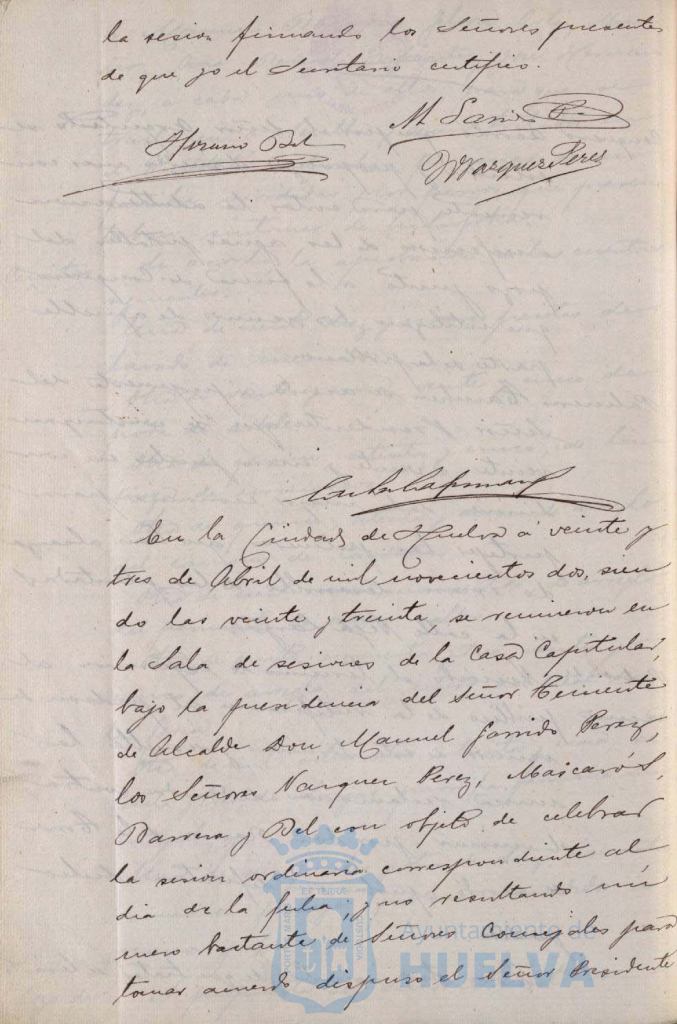 la sesion firmando los Señores presentes
de que yo el Secretario certifico.
M Garrido P.
Horacio Bel
Vazquez Perez
En la Ciudad de Huelva á veinte y
tres de Abril de mil novecientos dos, sien
do las veinte y treinta, se reunieron en
la Sala de sesiones de la Casa Capitular,
bajo la presidencia del Señor Teniente
de Alcalde Don Manuel Garrido Perez,
los Señores Vazquez Perez, Mascarós,
Barrera y Bel con objeto de celebrar
la sesion ordinaria correspondiente al
dia de la fecha, y no resultando nú
mero bastante de Señores Concejales para
tomar acuerdo dispuso el Señor Presidente
Ayuntamiento de
HUELVA